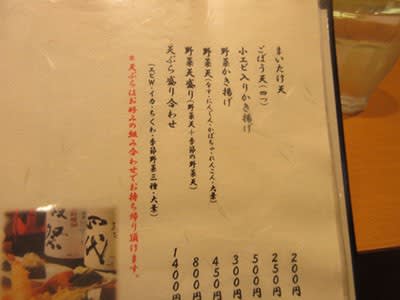 まいたけ天 200円
ごぼう天(四つ) 250円
小エビ入りかき揚げ 500円
野菜かき揚げ 300円
野菜天(なす・にんじん・かぼちゃ・れんこん・大葉) 450円
野菜天盛り(野菜天+季節の野菜天) 800円
天ぷら盛り合わせ 1400円
(エビW・イカ・ちくわ・季節野菜三種・大葉)
※天ぷらはお好みの組み合わせでお持ち帰り頂けます。
四代